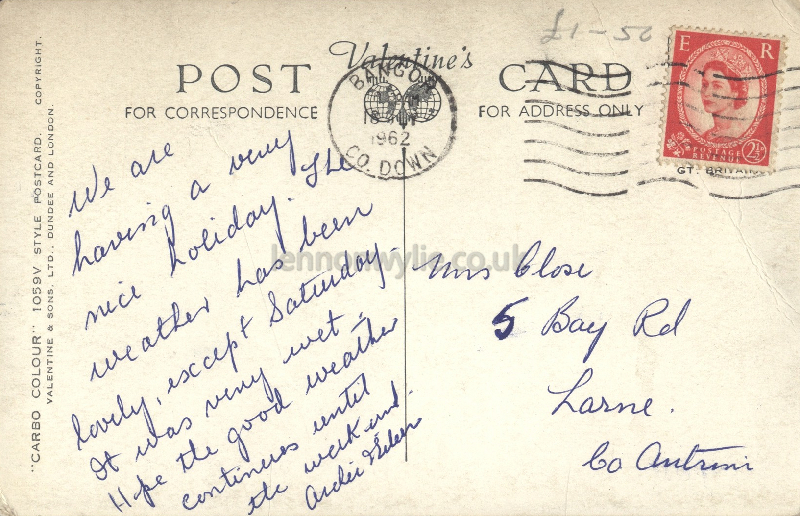 £1-50
Valentine's
POST CARD
FOR CORRESPONDENCE
FOR ADDRESS ONLY
BANGOR
1962
CO. DOWN
E R
POSTAGE
REVENUE
2½D
GT. BRITAIN
"CARBO COLOUR" 1059V STYLE POSTCARD. COPYRIGHT.
VALENTINE & SONS, LTD., DUNDEE AND LONDON.
We are
having a very
nice holiday. The
weather has been
lovely, except Saturday-
It was very wet-
Hope the good weather
continues until
the week-end.
& Eileen
Mrs Close
5 Bay Rd
Larne.
Co Antrim
lennonwylie.co.uk